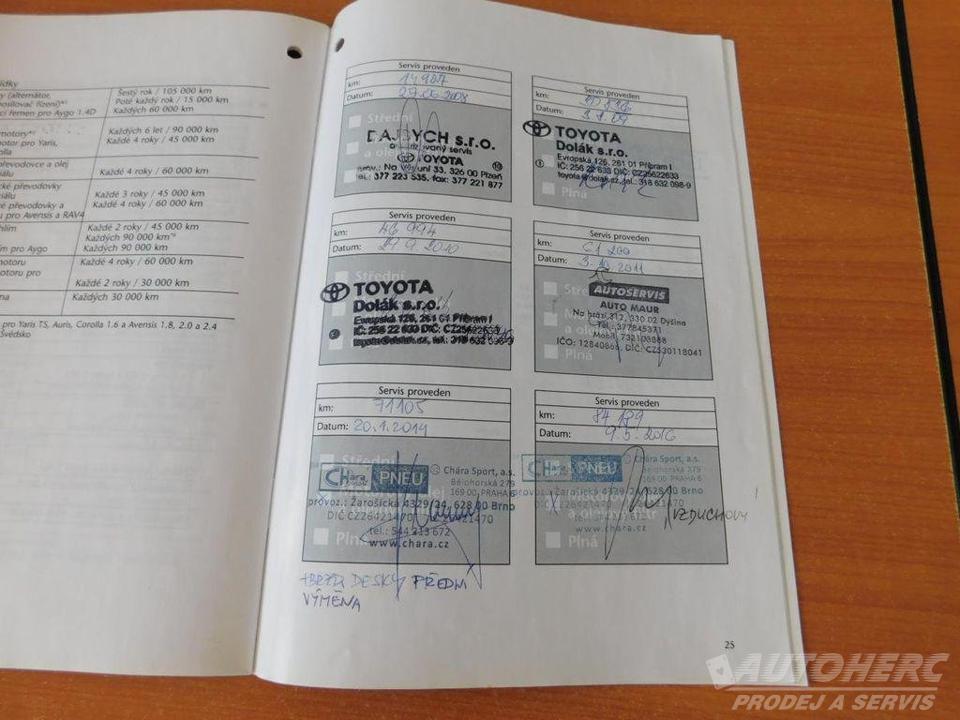 ídky
y (alternátor,
Šestý rok / 105 000 km
posilovač řízení)*¹
Poté každý rok / 15 000 km
cí řemen pro Aygo 1.4D
Každých 60 000 km
motory*²
Každých 6 let / 90 000 km
otor pro Yaris,
Každé 4 roky / 45 000 km
olla
převodovce a olej
Každé 4 roky / 60 000 km
iálu
cké převodovky
Každé 3 roky / 45 000 km
iálu
Každé 4 roky / 60 000 km
é převodovky a
u pro Avensis a RAV4
hlím
Každé 2 roky / 45 000 km
Každých 90 000 km
ím pro Aygo
Každých 90 000 km
motoru
Každé 4 roky / 60 000 km
otoru pro
Každé 2 roky / 30 000 km
na
Každých 30 000 km
pro Yaris TS, Auris, Corolla 1.6 a Avensis 1.8, 2.0 a 2.4
Švédsko
Servis proveden
km: 14987
Datum: 27.05.2008
Střední
s.r.o.
servis
TOYOTA
33, 326 00 Plzeň
tel.: 377 223 535, fax: 377 221 877
Servis proveden
km:
Datum: 3.7.09
TOYOTA
Dolák s.r.o.
Evropská 126, 261 01 Příbram I
IČ: 256 22 633 DIČ: CZ25622633
tel.: 318 632 098-9
Plná
Servis proveden
km: 46 994
Datum: 29.9.2010
Střední
TOYOTA
Dolák s.r.o.
Evropská 126, 261 01 Příbram I
IČ: 256 22 633 DIČ: CZ25622633
Servis proveden
km: 61 200
Datum: 3.10.2011
AUTOSERVIS
AUTO MAUR
Na hrázi 317, 330 02 Dýšina
Tel.: 37784537
Mobil:
a olejový
IČO: 12840866, DIČ: CZ530118041
Plná
Servis proveden
km: 71105
Datum: 20.1.2014
Střední
CHára PNEU
Chára Sport, a.s.
Bělohorská 279
169 00, PRAHA 6
provoz.: Žarošická 4329/24, 628 00 Brno
DIČ CZ26421470
tel.: 544 213 672
www.chara.cz
Plná
+BRZD. DESKY PŘEDNÍ
VÝMĚNA
Servis proveden
km: 84 129
Datum: 9.5.2016
CHára PNEU
Chára Sport, a.s.
Bělohorská 279
169 00 PRAHA 6
provoz.: Žarošická 4329/24, 628 00 Brno
a olejový filtr
Plná
VZDUCHOVÝ
25
AUTOHERC
PRODEJ A SERVIS